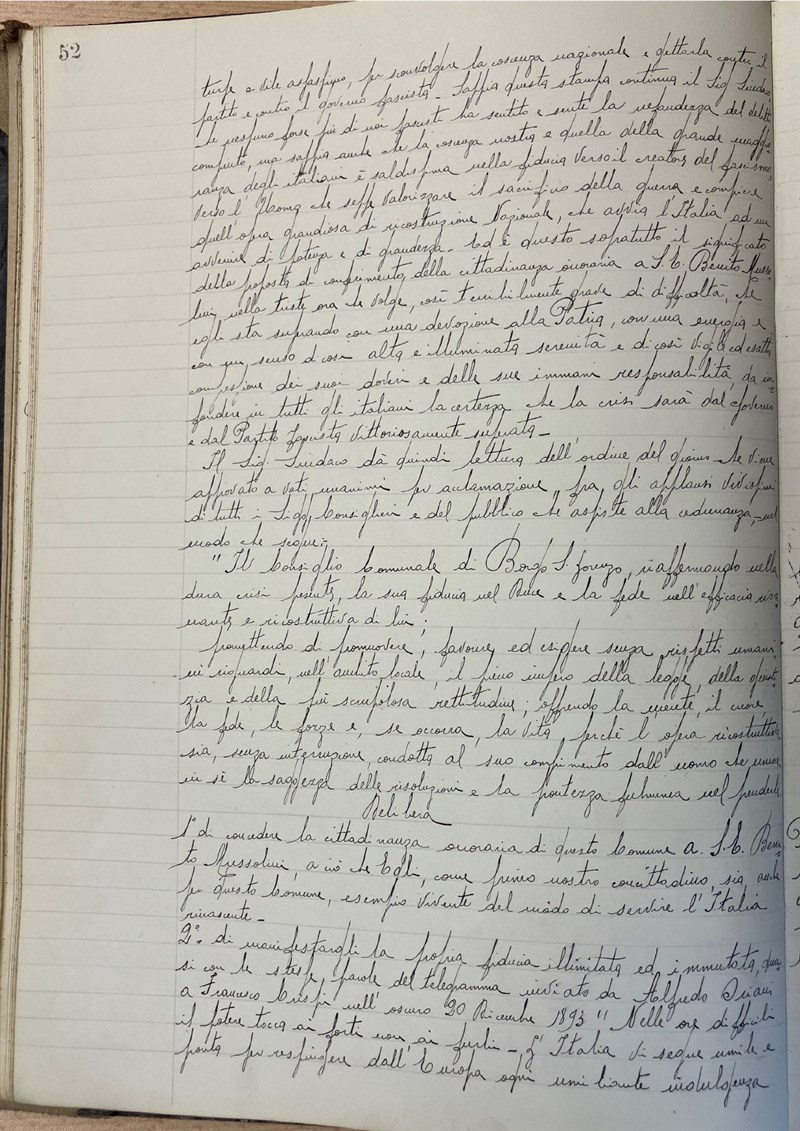 52
turpe e vile assassinio, per sconvolgere la coscienza nazionale e gettarla contro il
partito e contro il governo fascista - Sappia questa stampa continua il Sig. Sindaco
- che nessuno forse più di noi fascisti ha sentito e sente la nefandezza del delitto
compiuto, ma sappia anche che la coscienza nostra e quella della grande maggio-
ranza degli italiani è saldissima nella fiducia verso il creatore del fascismo,
verso l'Uomo che seppe valorizzare il sacrificio della guerra, e compiere
quell'opera grandiosa di ricostruzione Nazionale, che avvia l'Italia ad un
avvenire di potenza e di grandezza - Ed è questo sopratutto il significato
della proposta di conferimento della cittadinanza onoraria a S. E. Benito Musso-
lini, nella triste ora che volge, così terribilmente grave di difficoltà, che
egli sta superando con una devozione alla Patria, con una energia e
con un senso di così alta e illuminata serenità e di così vigile ed esatta
comprensione dei suoi doveri e delle sue immani responsabilità, da in-
fondere in tutti gli italiani la certezza che la crisi sarà dal Governo
e dal Partito fascista vittoriosamente superata -
Il Sig. Sindaco dà quindi lettura dell'ordine del giorno che viene
approvato a voti unanimi per acclamazione, fra gli applausi vivissimi
di tutti i Sigg. Consiglieri e del pubblico che assiste alla adunanza, nel
modo che segue:
"Il Consiglio Comunale di Borgo S. Lorenzo, riaffermando nella
dura crisi presente, la sua fiducia nel Duce e la fede nell'efficacia risa-
nante e ricostruttiva di lui;
promettendo di promuovere, favorire, ed esigere senza rispetti umani,
nè riguardi, nell'ambito locale, il pieno impero della legge, della giusti-
zia e della più scrupolosa rettitudine; offrendo la mente, il cuore,
la fede, le forze e, se occorra, la vita, perchè l'opera ricostruttiva
sia, senza interruzione, condotta al suo compimento dall'uomo che unisce
in sè la saggezza delle risoluzioni e la prontezza fulminea nel prenderle
Delibera
1° di concedere la cittadinanza onoraria di questo Comune a S. E. Beni-
to Mussolini, a ciò che Egli, come primo nostro concittadino, sia, anche
per questo Comune, esempio vivente del modo di servire l'Italia
rinascente -
2°. di manifestargli la propria fiducia illimitata ed immutata, qua-
si con le stesse parole del telegramma inviato da Alfredo Oriani
a Francesco Crispi nell'oscuro 20 Dicembre 1893 "Nelle ore difficili
il potere tocca ai forti non ai furbi - L'Italia vi segue umile e
pronta per respingere dall'Europa ogni umiliante indulgenza